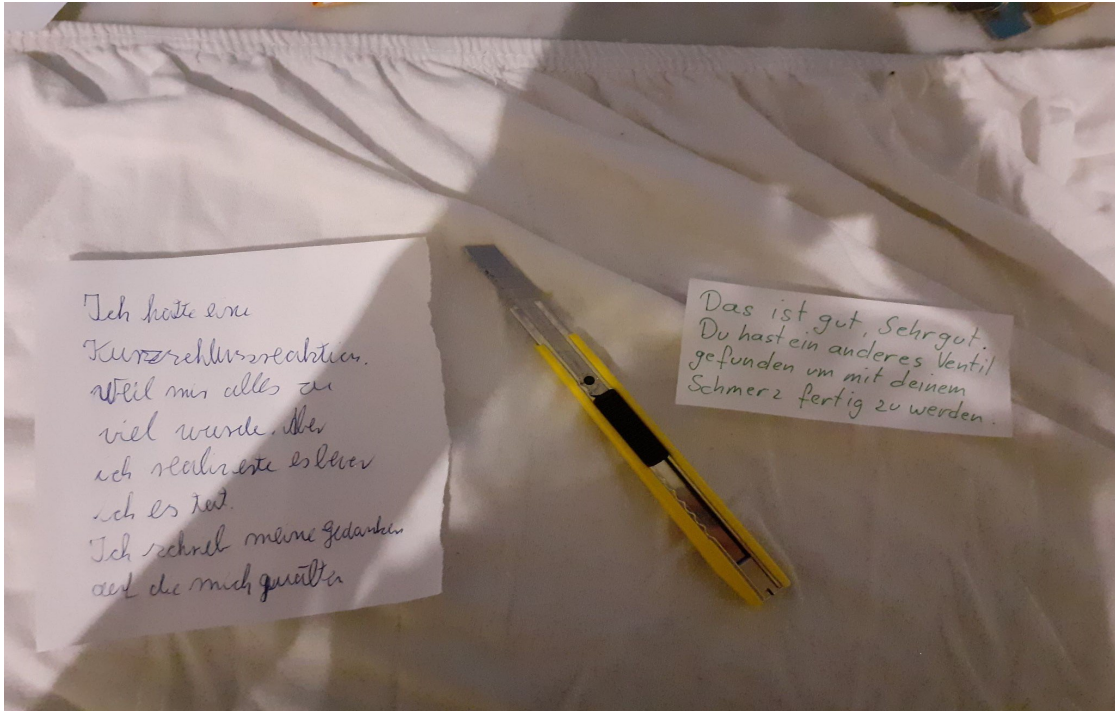 Ich hatte eine
Kurzschlussreaktion.
Weil mir alles zu
viel wurde. Aber
ich realisierte es bevor
ich es tat.
Ich schrieb meine Gedanken
auf die mich quälten
Das ist gut, Sehrgut.
Du hast ein anderes Ventil
gefunden um mit deinem
Schmerz fertig zu werden.